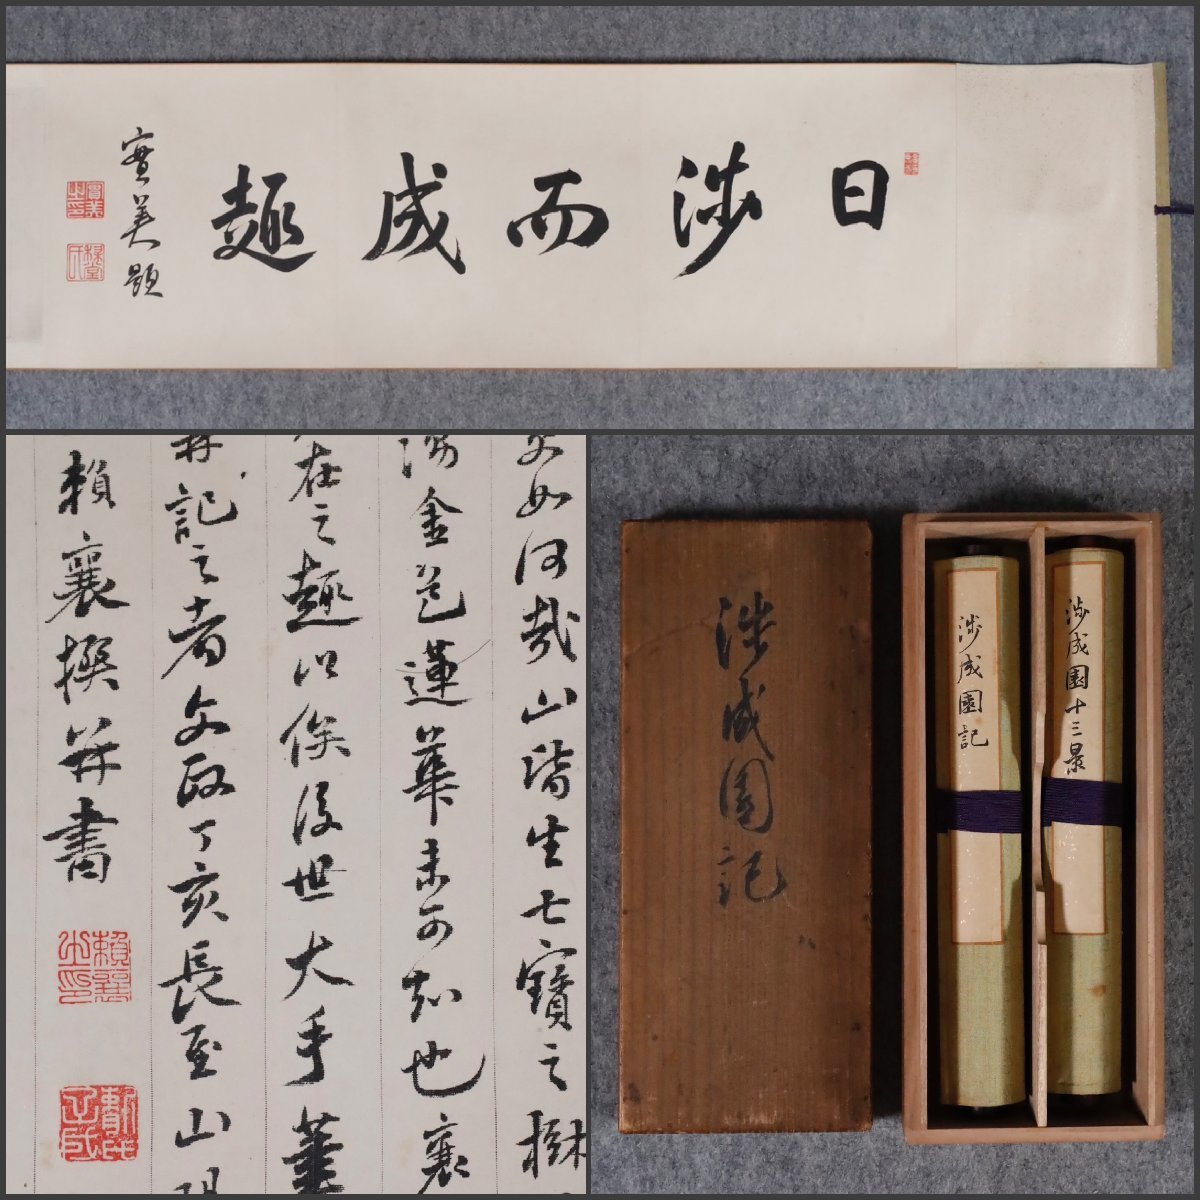 日涉而成趣
實美題
實美之印
如何哉山濤生七寶之樹
金色蓮華未可知也襄
在之趣以俟後世大手筆
記之者文政丁亥長至山陽
賴襄撰并書
賴襄之印
涉成園記
涉成園記
涉成園十三景